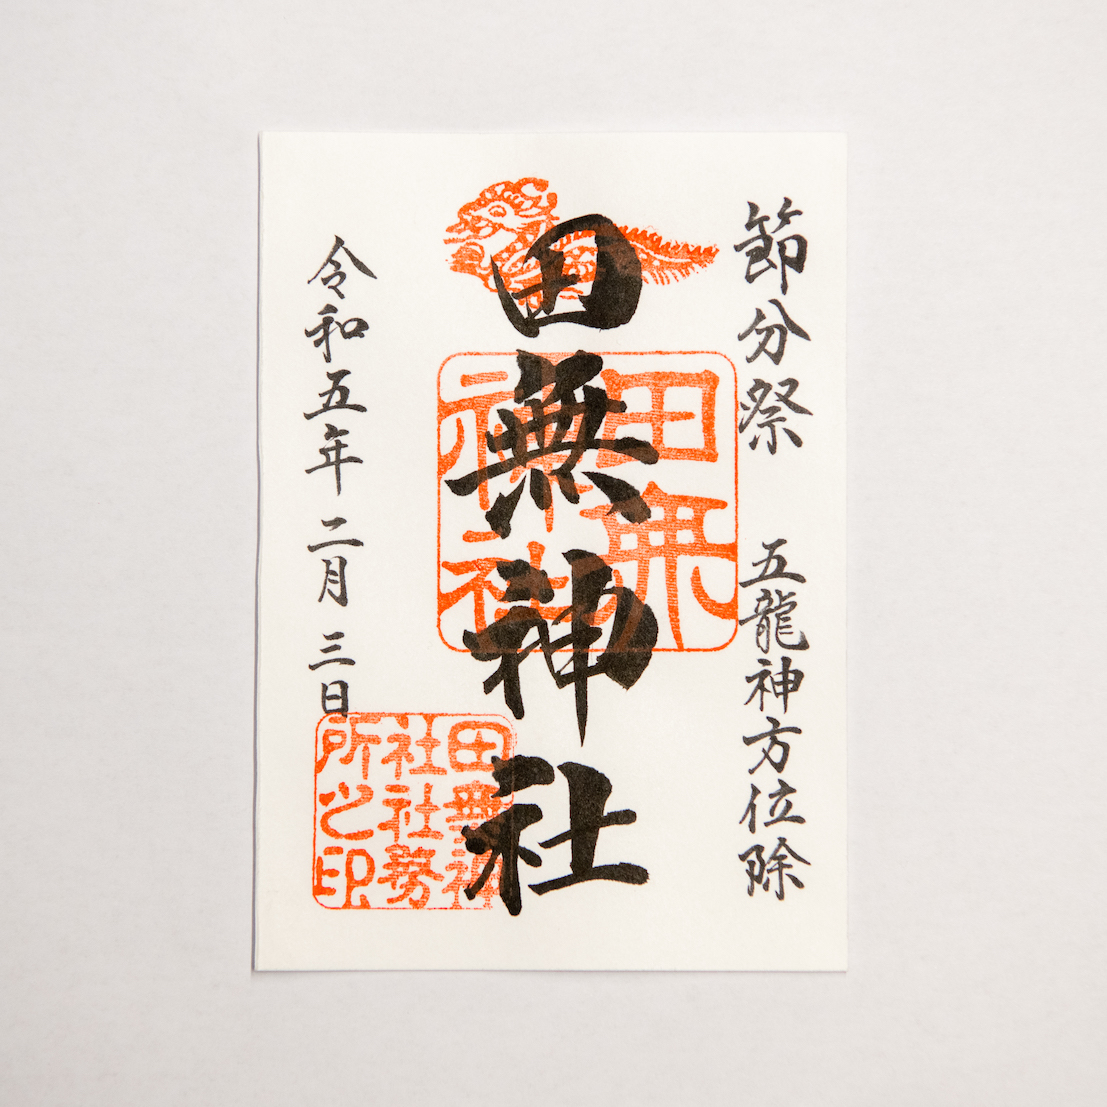 節分祭 五龍神方位除
田無神社
田無
神社
令和五年 二月 三日
田無神
社社務
所之印